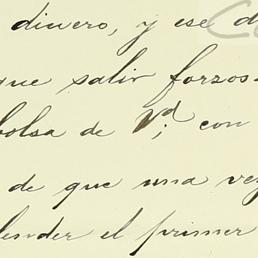 dinero, y ese d
que salir forzos
bolsa de Vd; con
de que una vez
lender el primer